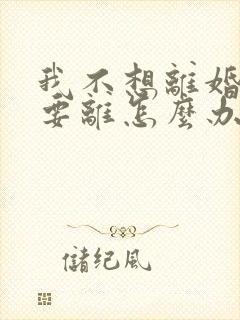 我不想離婚
要離怎麼办
儲纪風